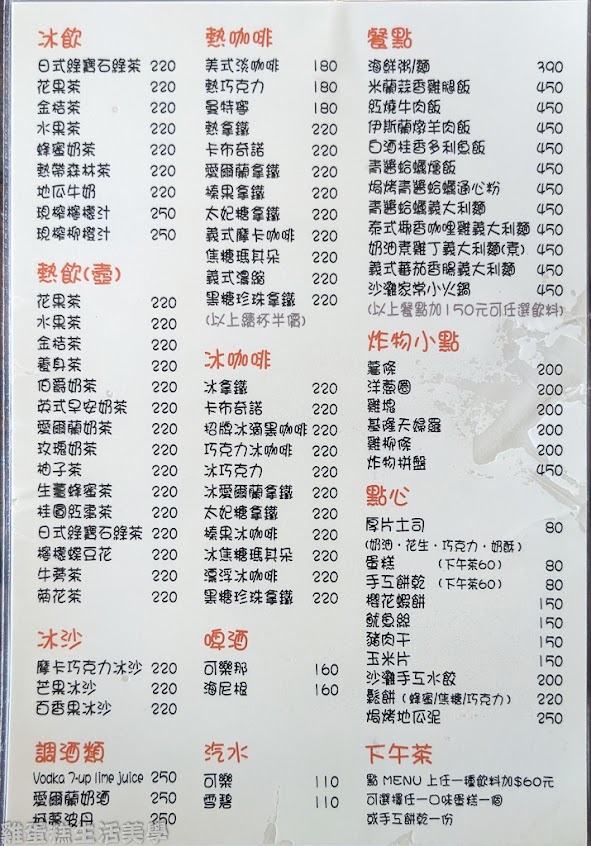 冰飲
日式綠寶石綠茶 220
花果茶 220
金桔茶 220
水果茶 220
蜂蜜奶茶 220
熱帶森林茶 220
地瓜牛奶 220
現榨檸檬汁 250
現榨柳橙汁 250
熱飲(壺)
花果茶 220
水果茶 220
金桔茶 220
養身茶 220
伯爵奶茶 220
英式早安奶茶 220
愛爾蘭奶茶 220
玫瑰奶茶 220
柚子茶 220
生薑蜂蜜茶 220
桂圓紅棗茶 220
日式綠寶石綠茶 220
檸檬蝶豆花 220
牛蒡茶 220
菊花茶 220
冰沙
摩卡巧克力冰沙 220
芒果冰沙 220
百香果冰沙 220
調酒類
Vodka 7-up lime juice 250
愛爾蘭奶酒 250
柯夢波丹 250
熱咖啡
美式淡咖啡 180
熱巧克力 180
曼特寧 180
熱拿鐵 220
卡布奇諾 220
愛爾蘭拿鐵 220
榛果拿鐵 220
太妃糖拿鐵 220
義式摩卡咖啡 220
焦糖瑪其朵 220
義式濃縮 220
黑糖珍珠拿鐵 220
(以上續杯半價)
冰咖啡
冰拿鐵 220
卡布奇諾 220
招牌冰滴黑咖啡 220
巧克力冰咖啡 220
冰巧克力 220
冰愛爾蘭拿鐵 220
太妃糖拿鐵 220
榛果冰咖啡 220
冰焦糖瑪其朵 220
漂浮冰咖啡 220
黑糖珍珠拿鐵 220
啤酒
可樂那 160
海尼根 160
汽水
可樂 110
雪碧 110
餐點
海鮮粥/麵 390
米蘭蒜香雞腿飯 450
紅燒牛肉飯 450
伊斯蘭燉羊肉飯 450
白酒桂香多利魚飯 450
青醬蛤蠣燉飯 450
焗烤青醬蛤蠣通心粉 450
青醬蛤蠣義大利麵 450
泰式椰香咖哩雞義大利麵 450
奶油素雞丁義大利麵(素) 450
義式蕃茄香腸義大利麵 450
沙灘家常小火鍋 450
(以上餐點加150元可任選飲料)
炸物小點
薯條 200
洋蔥圈 200
雞塊 200
基隆天婦羅 200
雞柳條 200
炸物拼盤 450
點心
厚片土司 80
(奶油·花生·巧克力·奶酥)
蛋糕 (下午茶60) 80
手工餅乾 (下午茶60) 80
櫻花蝦餅 150
魷魚絲 150
豬肉干 150
玉米片 150
沙灘手工水餃 200
鬆餅(蜂蜜/焦糖/巧克力) 220
焗烤地瓜泥 250
下午茶
點 MENU 上任一種飲料加$60元
可選擇任一口味蛋糕一個
或手工餅乾一份
雞蛋糕生活美學